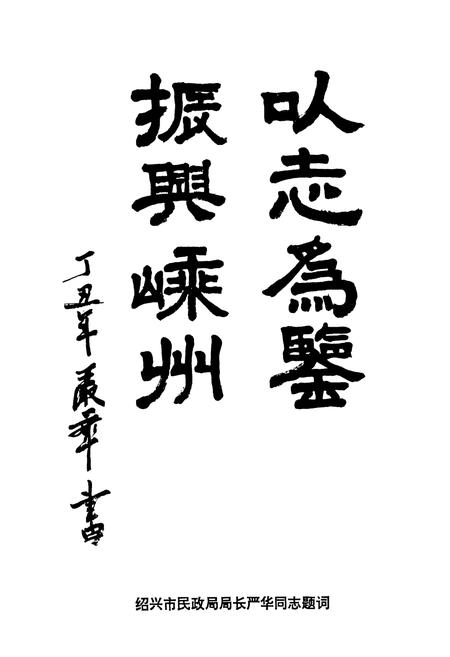 以志爲鑒
振興嵊州
丁丑年 嚴華 書
绍兴市民政局局长严华同志题词